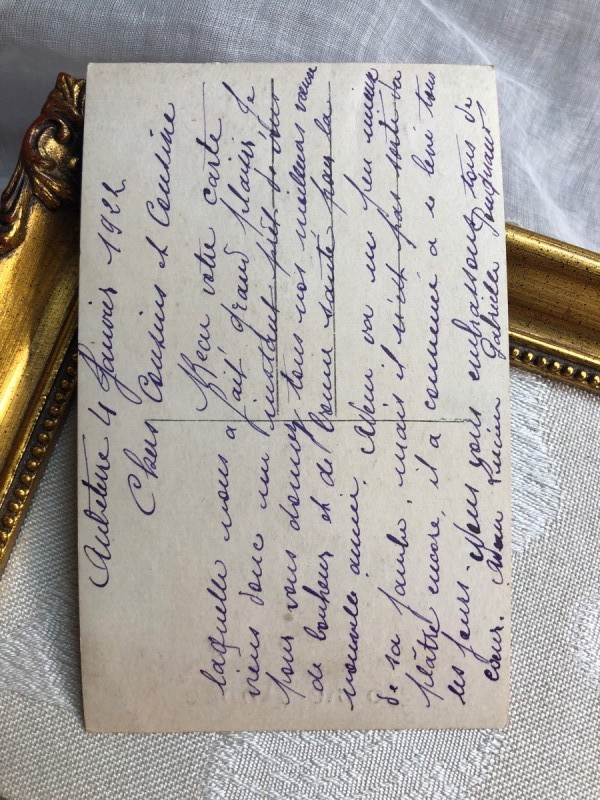 Aubeterre 4 Janvier 1922
Chers Cousins et Cousine
Reçu votre carte
laquelle nous a fait grand plaisir je
viens donc un instant près de vous
pour vous donner tous nos meilleurs vœux
de bonheur et de bonne santé pour la
nouvelle année. Adem va un peu mieux
de sa jambe, mais il n'est pas sorti du
plâtre encore, il a commencé a ce levé tous
les jours. Nous vous embrassons tous de
cœur. Adem Lucien Gabrielle